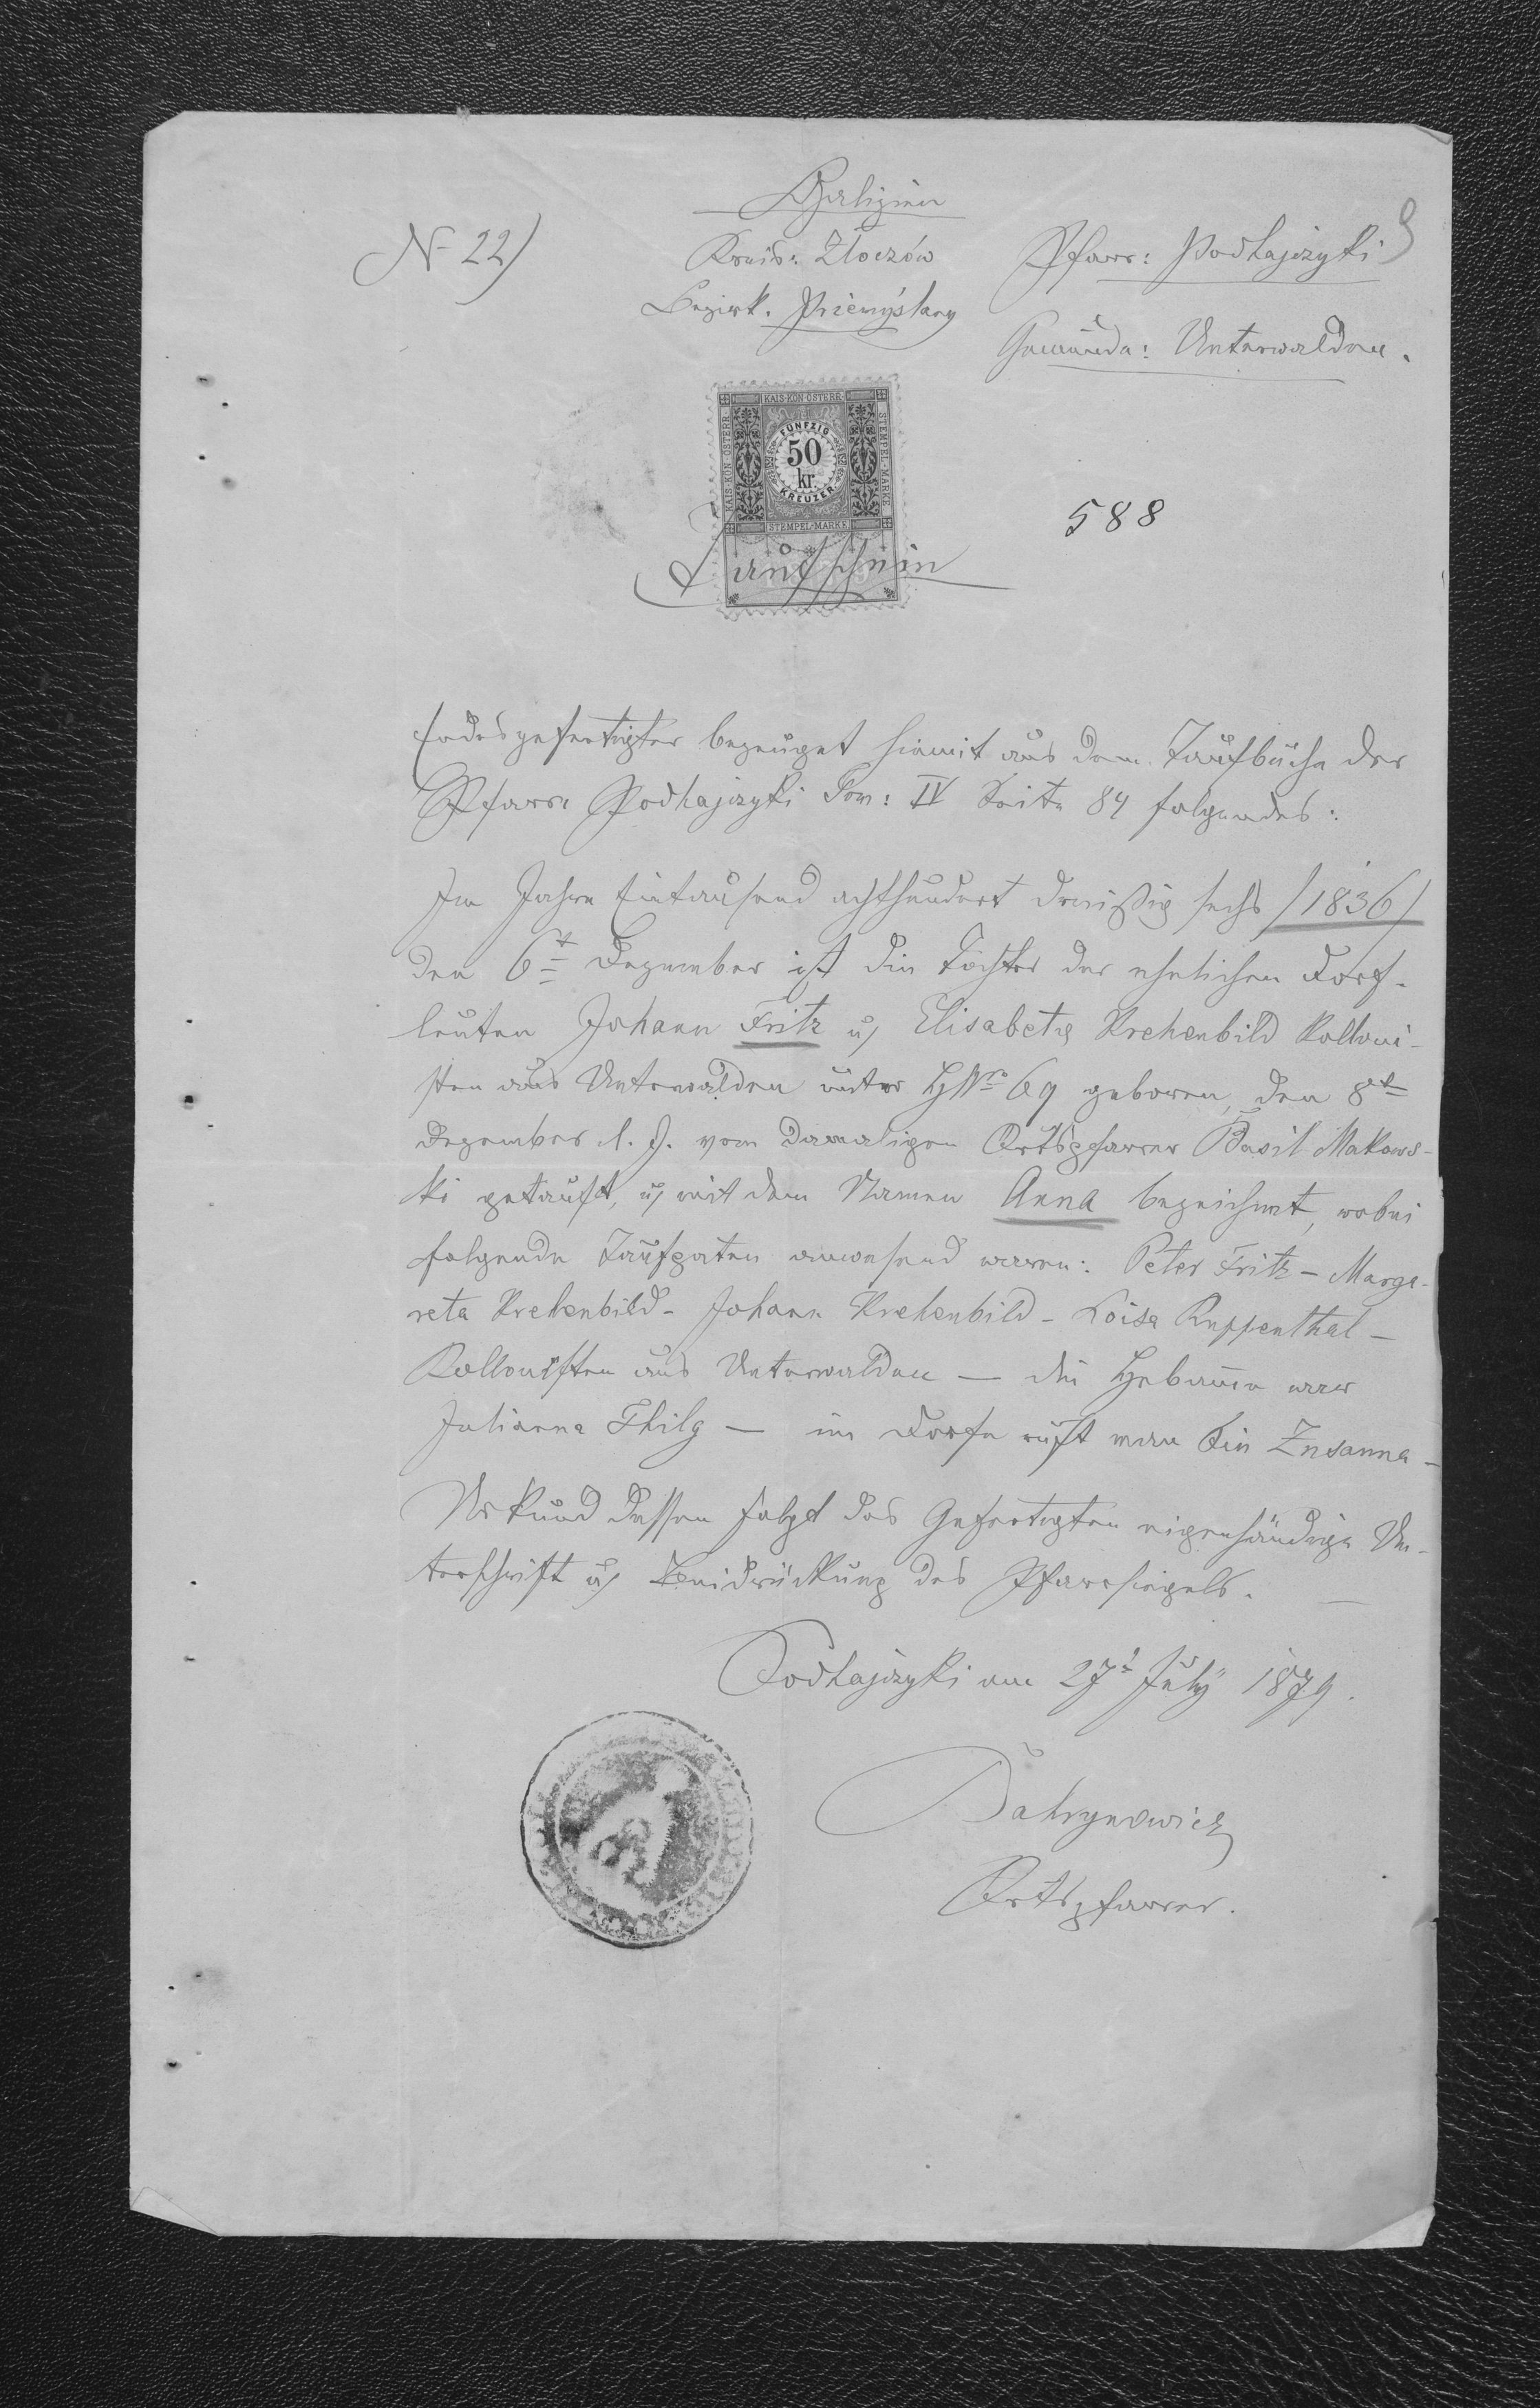 Galizien
N 22)
Kreis: Złoczów
Pfarr: Podhajczyki
Bezirk. Przemyślany
Gemeinde: Unterwalden.
KAIS·KÖN·ÖSTERR·
STEMPEL-MARKE
FÜNFZIG
50
kr.
KREUZER
STEMPEL-MARKE
588
Taufschein
Endesgefertigter bezeuget hiemit aus dem Taufbuche der
Pfarre Podhajczyki Tom: IV Seite 84 folgendes:
Im Jahre Eintausend achthundert dreißig sechs /1836/
den 6t Dezember ist die Tochter der ehelichen Dorf-
leuten Johann Fritz u/ Elisabeth Krehenbild Kolloni-
sten aus Unterwalden unter HNro 69 geboren, den 8t
Dezember l. J. vom damaligen Ortspfarrer Basil Makows-
ki getauft, u/ mit dem Namen Anna bezeichnet, wobei
folgende Taufpaten anwesend waren: Peter Fritz – Marga-
reta Krehenbild – Johann Krehenbild – Loisa Ruppenthal –
Kollonisten aus Unterwalden — die Hebamme war
Julianna Philg — im Dorfe ruft man sie Zusanna –
Urkund dessen folgt des Gefertigten eigenhändige Un-
terschrift u/ Beidrückung des Pfarrsiegels. —
Podhajczyki am 27t July 1879.
Ortspfarrer.